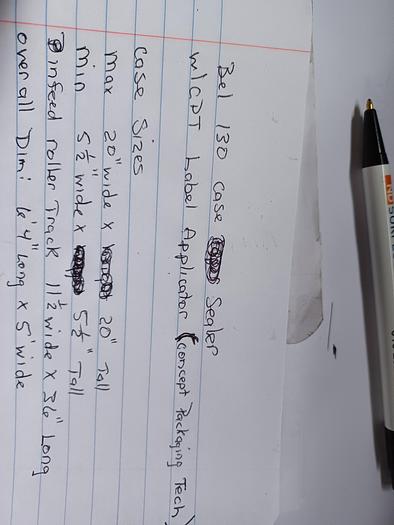 Bel 130 case Sealer
w/CPT Label Applicator (Concept Packaging Tech)
Case Sizes
Max 20" wide x 20" Tall
Min 5½" wide x 5½" Tall
infeed roller Track 11½ wide x 36" Long
overall Dim: 6'4" Long x 5' wide